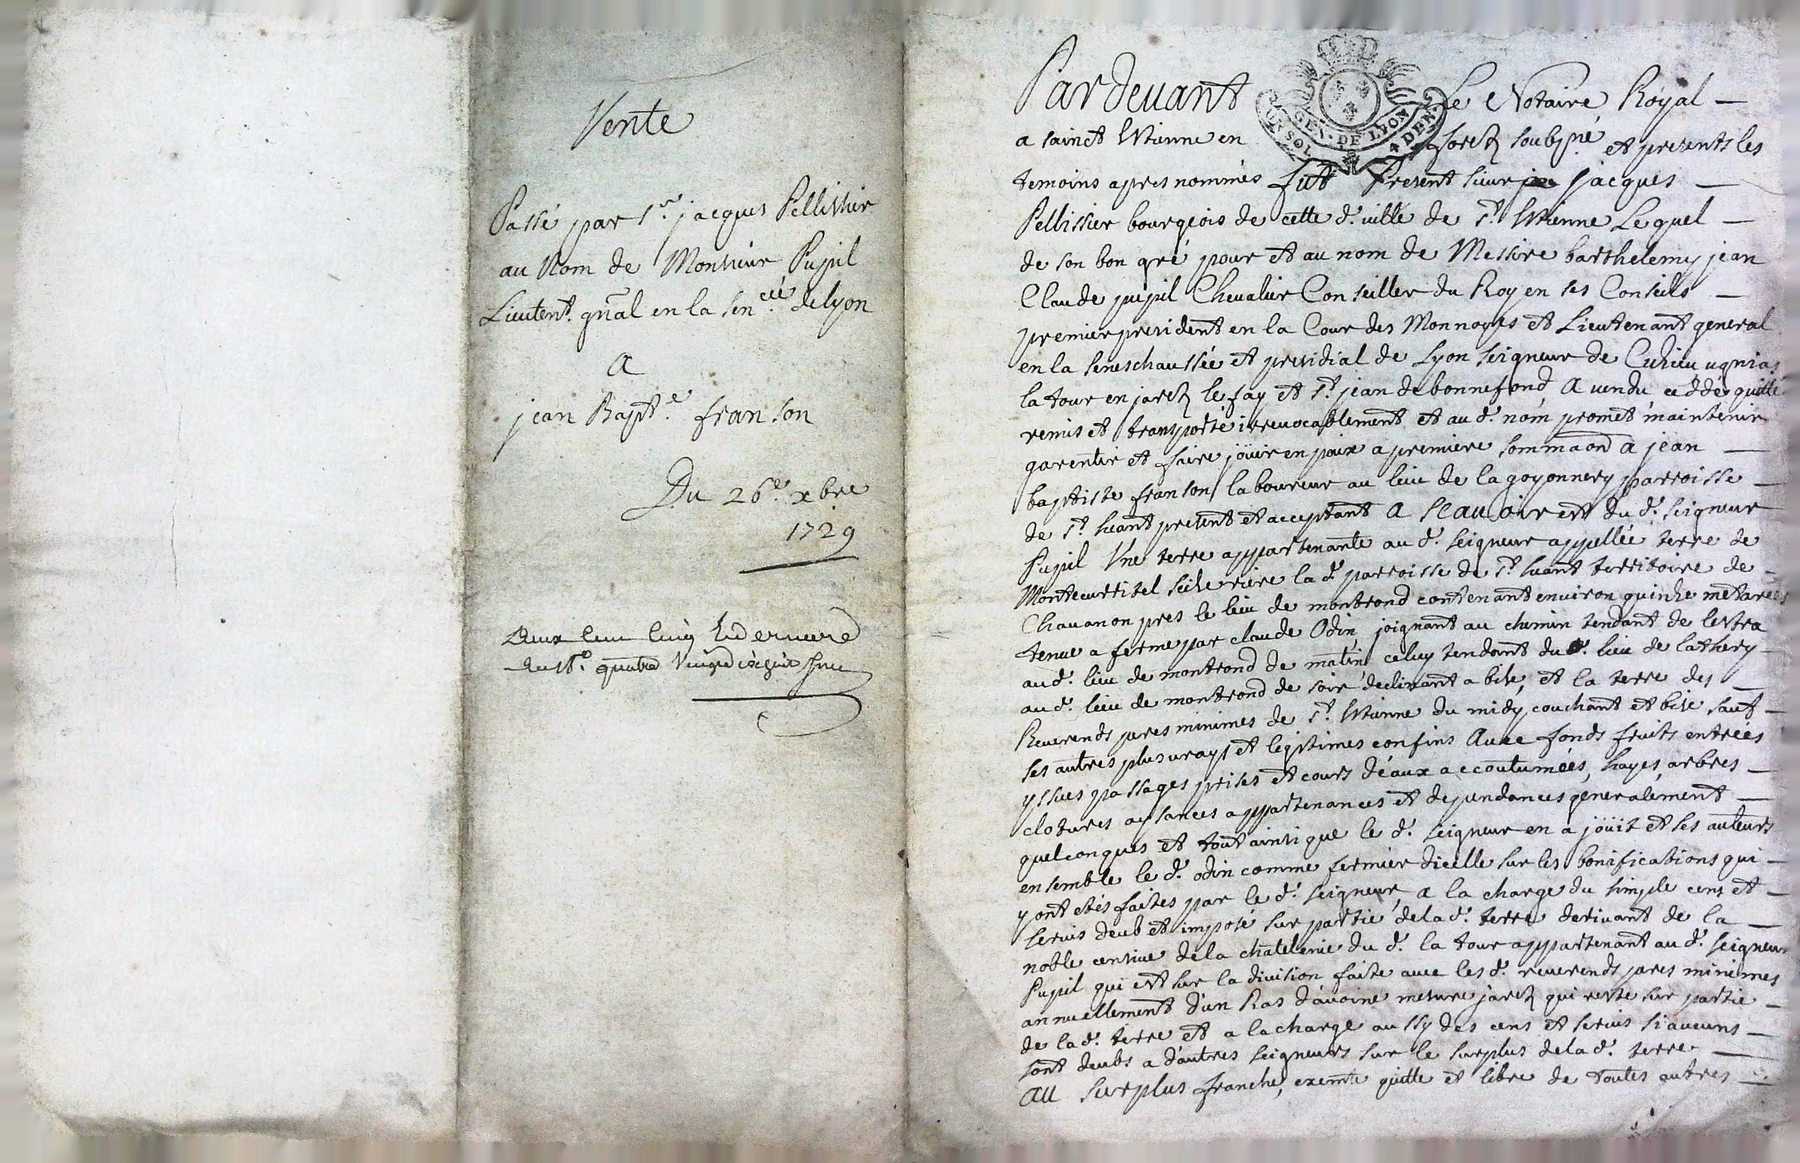 Vente
Passé par Sr. jacques Pellissier
au Nom de Monsieur Pupil
Lieutent. gñal en la Sen.cée de lyon
A
jean Bapt.e franson
Du 26.e xbre
1729
quatre vingt dix huit
Pardevant Le Notaire Royal
UN SOL GEN. DE LYON 4 DEN.
a sainct Etienne en forez soubsné et presents les
temoins apres nommés fut Present sieur jacques
Pellissier bourgeois de cette d. ville de St. Etienne Lequel
de son bon gré pour et au nom de Messire barthelemy jean
Claude pupil Chevalier Conseiller du Roy en ses Conseils
premier president en la Cour des Monnoyes et Lieutenant general
en la seneschaussée et presidial de Lyon seigneur de Cuzieu ugnias
la tour en jarez le fay et St. jean de bonnefond, A vendu, ceddé quitté
remis et transporté irrevocablement et au d. nom promet maintenir
garentir et faire joüir en paix a premiere sommaõn a jean
baptiste franson laboureur au lieu de la goyonnery parroisse
de St. heant present et acceptant A Scauoir est du d. seigneur
Pupil Une terre appartenante au d. seigneur appellée terre de
Montecurtitel size riere la d. parroisse de St. heant territoire de
Chauanon pres le lieu de montrond contenant environ quinze metares
tenue a ferme par claude Odin joignant au chemin tendant de lestra
au d. lieu de montrond de matin celuy tendant du d. lieu de lathery
au d. lieu de montrond de soir declinant a bise, et la terre des
Reuerends peres minimes de St. Etienne du midy couchant et bise sauf
ses autres plus urays et legitimes confins Auec fonds fruits entrées
yssues passages prises et cours déaux accoutumées, hayes arbres
clotures aysances appartenances et dependances generalement
quelconques et tout ainsi que le d. seigneur en a joüit et ses auteurs
ensemble le d. odin comme fermier dicelle sur les bonifications qui
y ont etés faites par le d. seigneur, a la charge du simple cens et
seruis deub et imposé sur partie de la d. terre deriuant de la
noble censiue de la chatelenie du d. la tour appartenant au d. seigneur
Pupil qui est sur la division faite auec les d. reuerends peres minimes
annuellement d'un Ras d'auoine mesure jarez qui reste sur partie
de la d. terre et a la charge aussy des cens et seruis si aucuns
sont deubs a d'autres seigneurs sur le surplus de la d. terre
au surplus franche, exemte quitte et libre de toutes autres